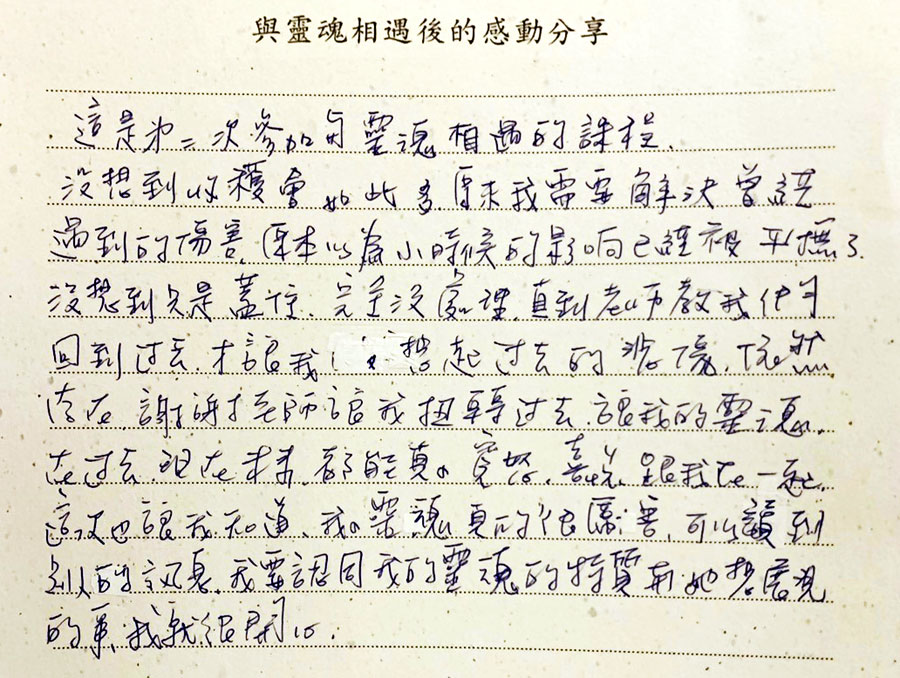 與靈魂相遇後的感動分享
這是第二次參加与靈魂相遇的課程.
沒想到收穫會如此多.原來我需要解決曾經
遇到的傷害.原本以為小時候的影响已經被平撫了.
沒想到只是蓋住.完全沒處理.直到老師教我們
回到过去.才讓我想起过去的悲傷.依然
存在.謝謝老師讓我扭轉过去.讓我的靈魂.
在过去.現在未來.都能真的寬恕.喜悅.跟我在一起.
這次也讓我知道.我的靈魂真的很厲害.可以讀到
別人的訊息.我要認同我的靈魂的特質和她想展現
的事.我就很開心.